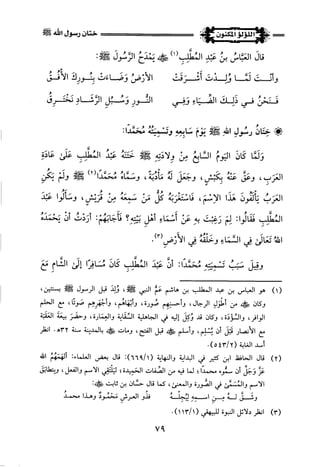 اللؤلؤ المكنون
ختان رسول الله ﷺ
قَالَ العَبَّاسُ بنُ عَبْدِ المُطَّلِبِ(١) ﷺ يَمْدَحُ الرَّسُولَ ﷺ:
وَأَنْتَ لَمَّا وُلِدْتَ أَشْرَقَتْ الأَرْضُ وَضَاءَتْ بِنُورِكَ الأُفُقُ
فَنَحْنُ فِي ذَلِكَ الضِّيَاءِ وَفِي النُّورِ وَسُبُلِ الرَّشَادِ نَخْتَرِقُ
* خِتَانُ رَسُولِ اللهِ ﷺ يَوْمَ سَابِعِهِ وَتَسْمِيَتُهُ مُحَمَّدًا:
وَلَمَّا كَانَ اليَوْمُ السَّابِعُ مِنْ وِلَادَتِهِ ﷺ خَتَنَهُ عَبْدُ المُطَّلِبِ عَلَى عَادَةِ
العَرَبِ، وَعَقَّ عَنْهُ بِكَبْشٍ، وَجَعَلَ لَهُ مَأْدُبَةً، وَسَمَّاهُ مُحَمَّدًا(٢) ﷺ وَلَمْ يَكُنِ
العَرَبُ يَأْلَفُونَ هَذَا الاسْمَ، فَاسْتَغْرَبَهُ كُلُّ مَنْ سَمِعَهُ مِنْ قُرَيْشٍ، وَسَأَلُوا عَبْدَ
المُطَّلِبِ فَقَالُوا: لِمَ رَغِبْتَ بِهِ عَنْ أَسْمَاءِ أَهْلِ بَيْتِهِ؟ فَأَجَابَهُمْ: أَرَدْتُ أَنْ يَحْمَدَهُ
اللهُ تَعَالَى فِي السَّمَاءِ وَخَلْقُهُ فِي الأَرْضِ(٣).
وَقِيلَ سَبَبُ تَسْمِيَتِهِ مُحَمَّدًا: أَنَّ عَبْدَ المُطَّلِبِ كَانَ مُسَافِرًا إِلَى الشَّامِ مَعَ
(١) هو العباس بن عبد المطلب بن هاشم عَمُّ النبي ﷺ، وُلِدَ قبل الرسول ﷺ بسنتين،
وكان من أطول الرجال، وأحسنهم صُورة، وأبهاهم، وأجهرهم صوتًا، مع الحلم
الوافر، والسؤدد، وكان قد وُكِلَ إليه في الجاهلية السقاية والعمارة، وحضر بيعة العقبة
مع الأنصار قبل أن يُسلم، وأسلم قبل الفتح، ومات بالمدينة سنة ٣٢هـ. انظر
أسد الغابة (٥٤٣/٢).
(٢) قال الحافظ ابن كثير في البداية والنهاية (٦٦٩/١): قال بعض العلماء: ألهمهم الله
عَزَّ وَجَلَّ أن سموه محمدًا؛ لما فيه من الصفات الحميدة، ليلتقي الاسم والفعل، ويتطابق
الاسم والمُسَمَّى في الصورة والمعنى، كما قال حسَّان بن ثابت:
وشَقَّ له من اسمه ليُجِلَّهُ فذو العرش محمودٌ وهذا محمدُ
(٣) انظر دلائل النبوة للبيهقي (١١٣/١).
٧٩